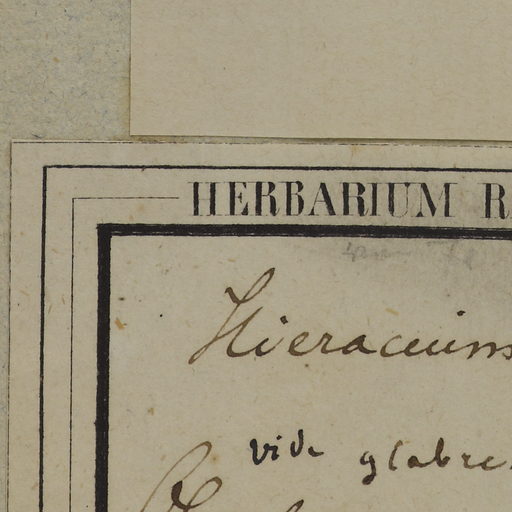 HERBARIUM R
Hieracium
vide glabre